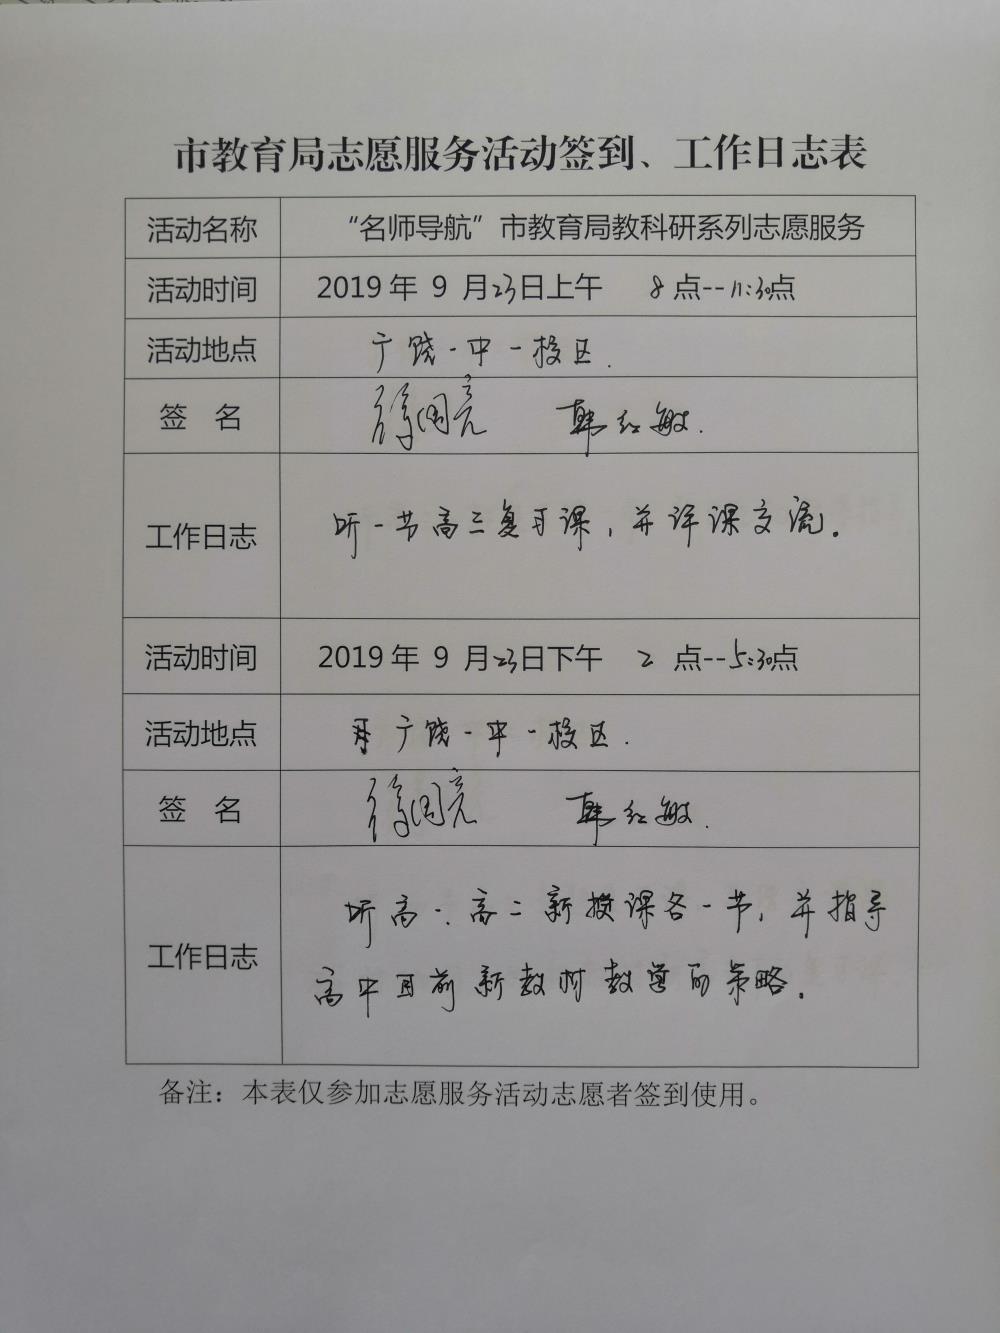 市教育局志愿服务活动签到、工作日志表
活动名称 “名师导航”市教育局教科研系列志愿服务
活动时间 2019年 9 月23日上午 8 点--11:30点
活动地点 广饶一中一校区.
签 名 韩红敏.
工作日志 听一节高三复习课,并评课交流.
活动时间 2019年 9 月23日下午 2 点--5:30点
活动地点 广饶一中一校区.
签 名 韩红敏.
工作日志 听高一.高二新授课各一节,并指导
高中目前新教材教学的策略.
备注:本表仅参加志愿服务活动志愿者签到使用。